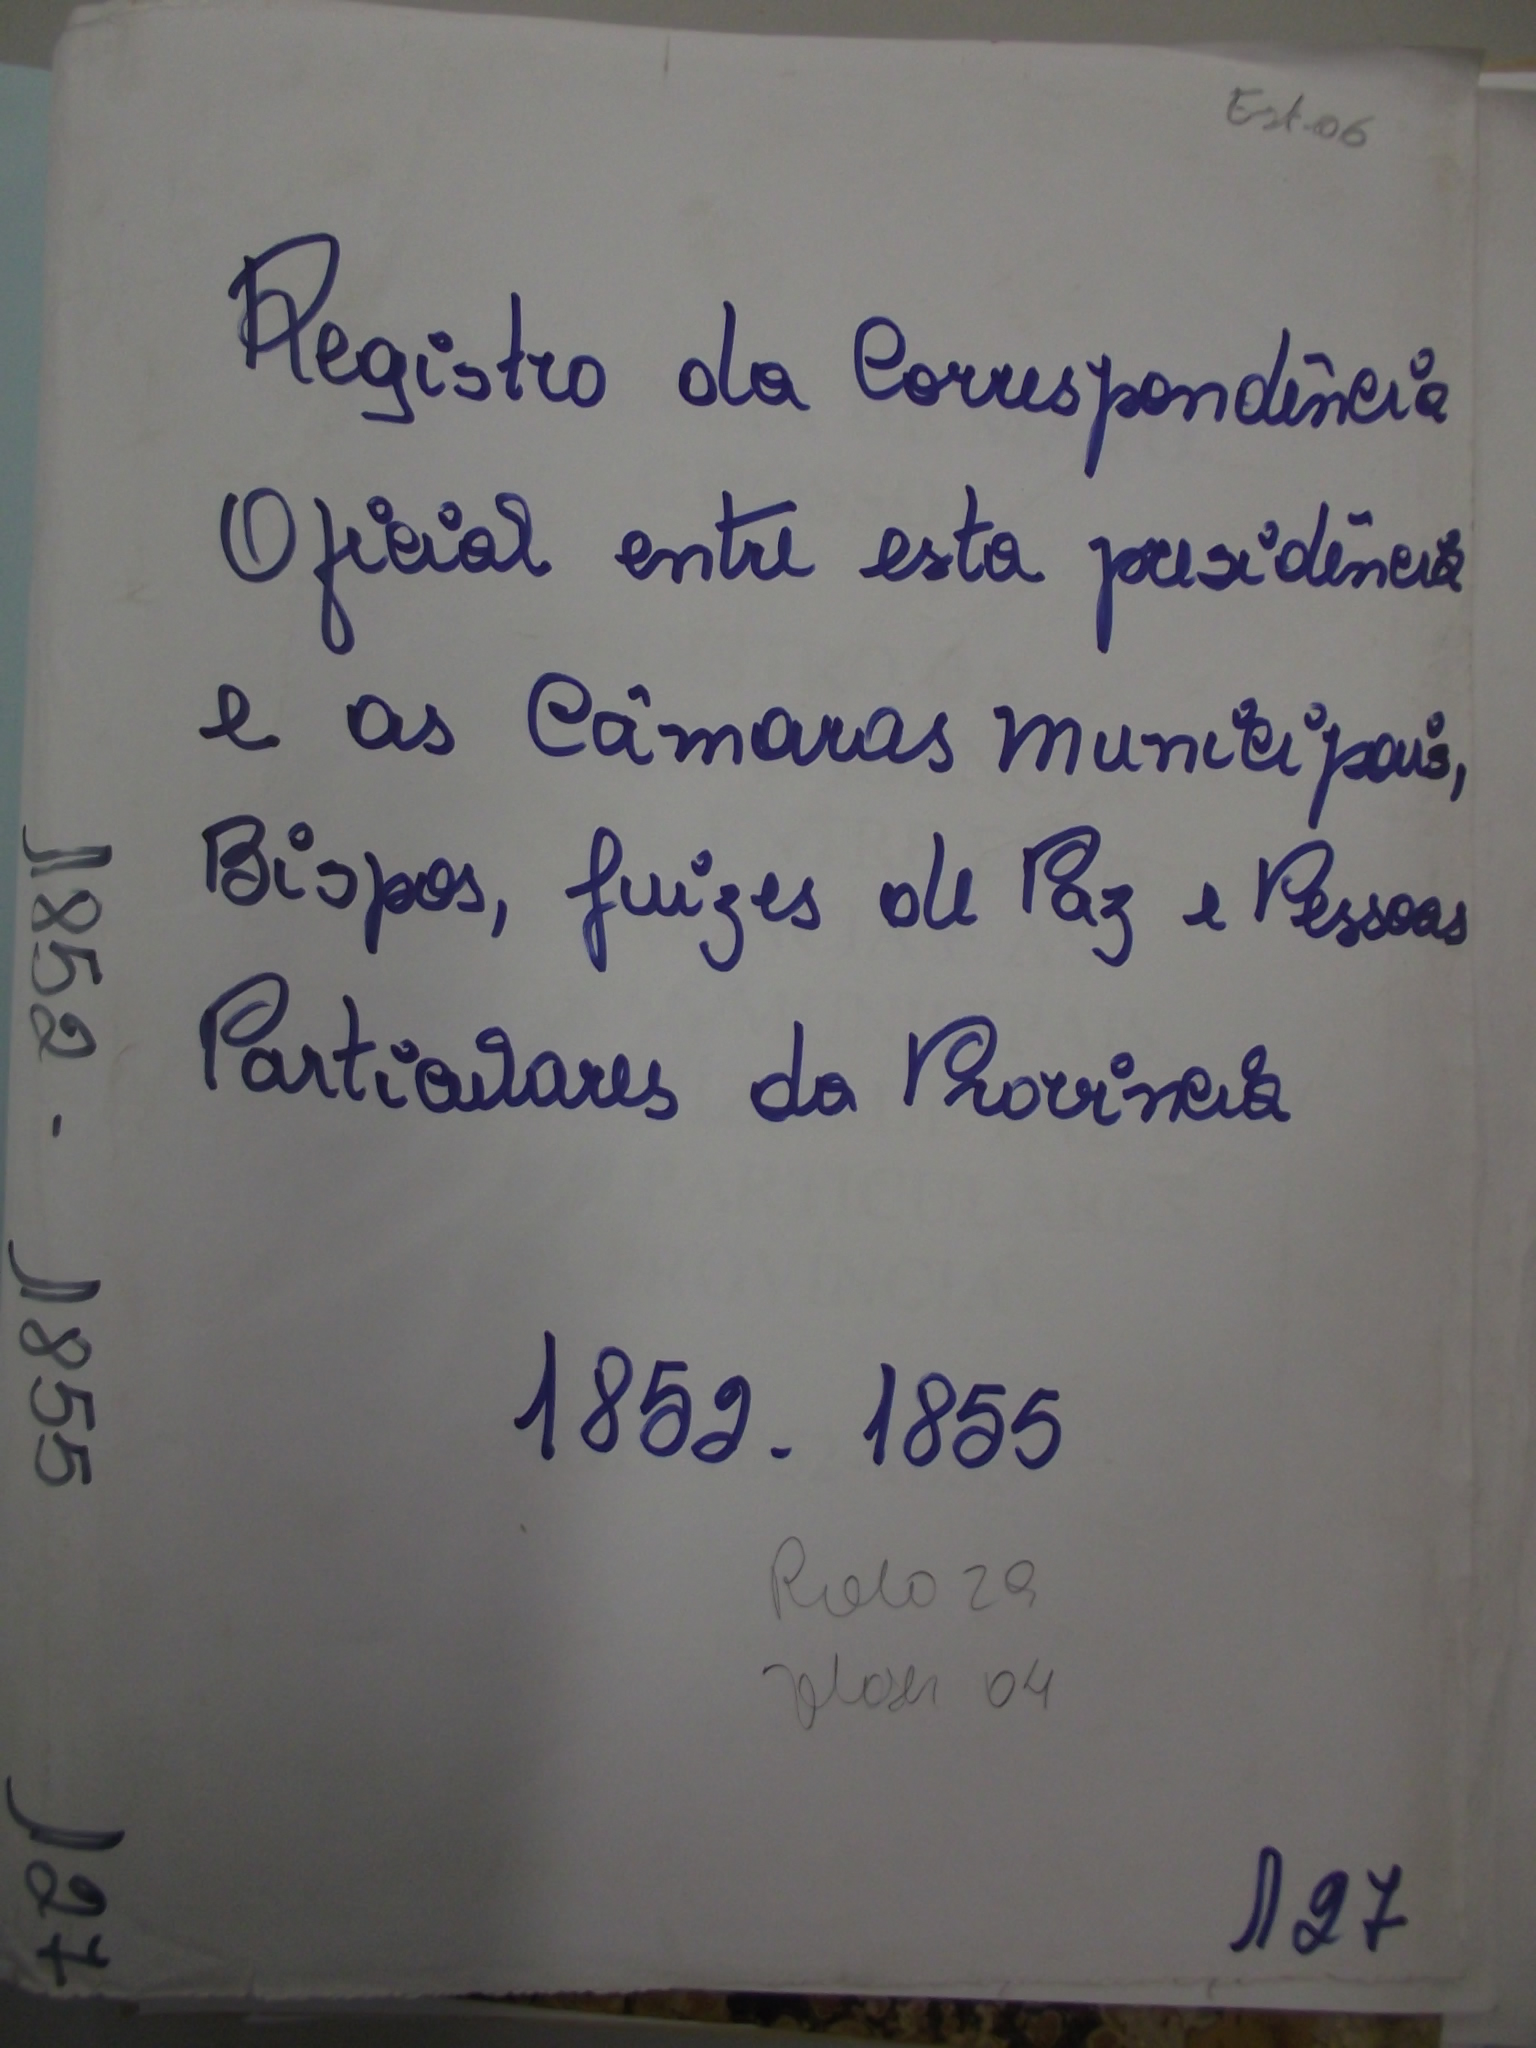 Est. 06
Registro da Correspondência
Oficial entre esta presidência
e as Câmaras Municipais,
Bispos, Juizes de Paz e Pessoas
Particulares da Província
1852. 1855
Rolo 29
04
127
1852 - 1855
127